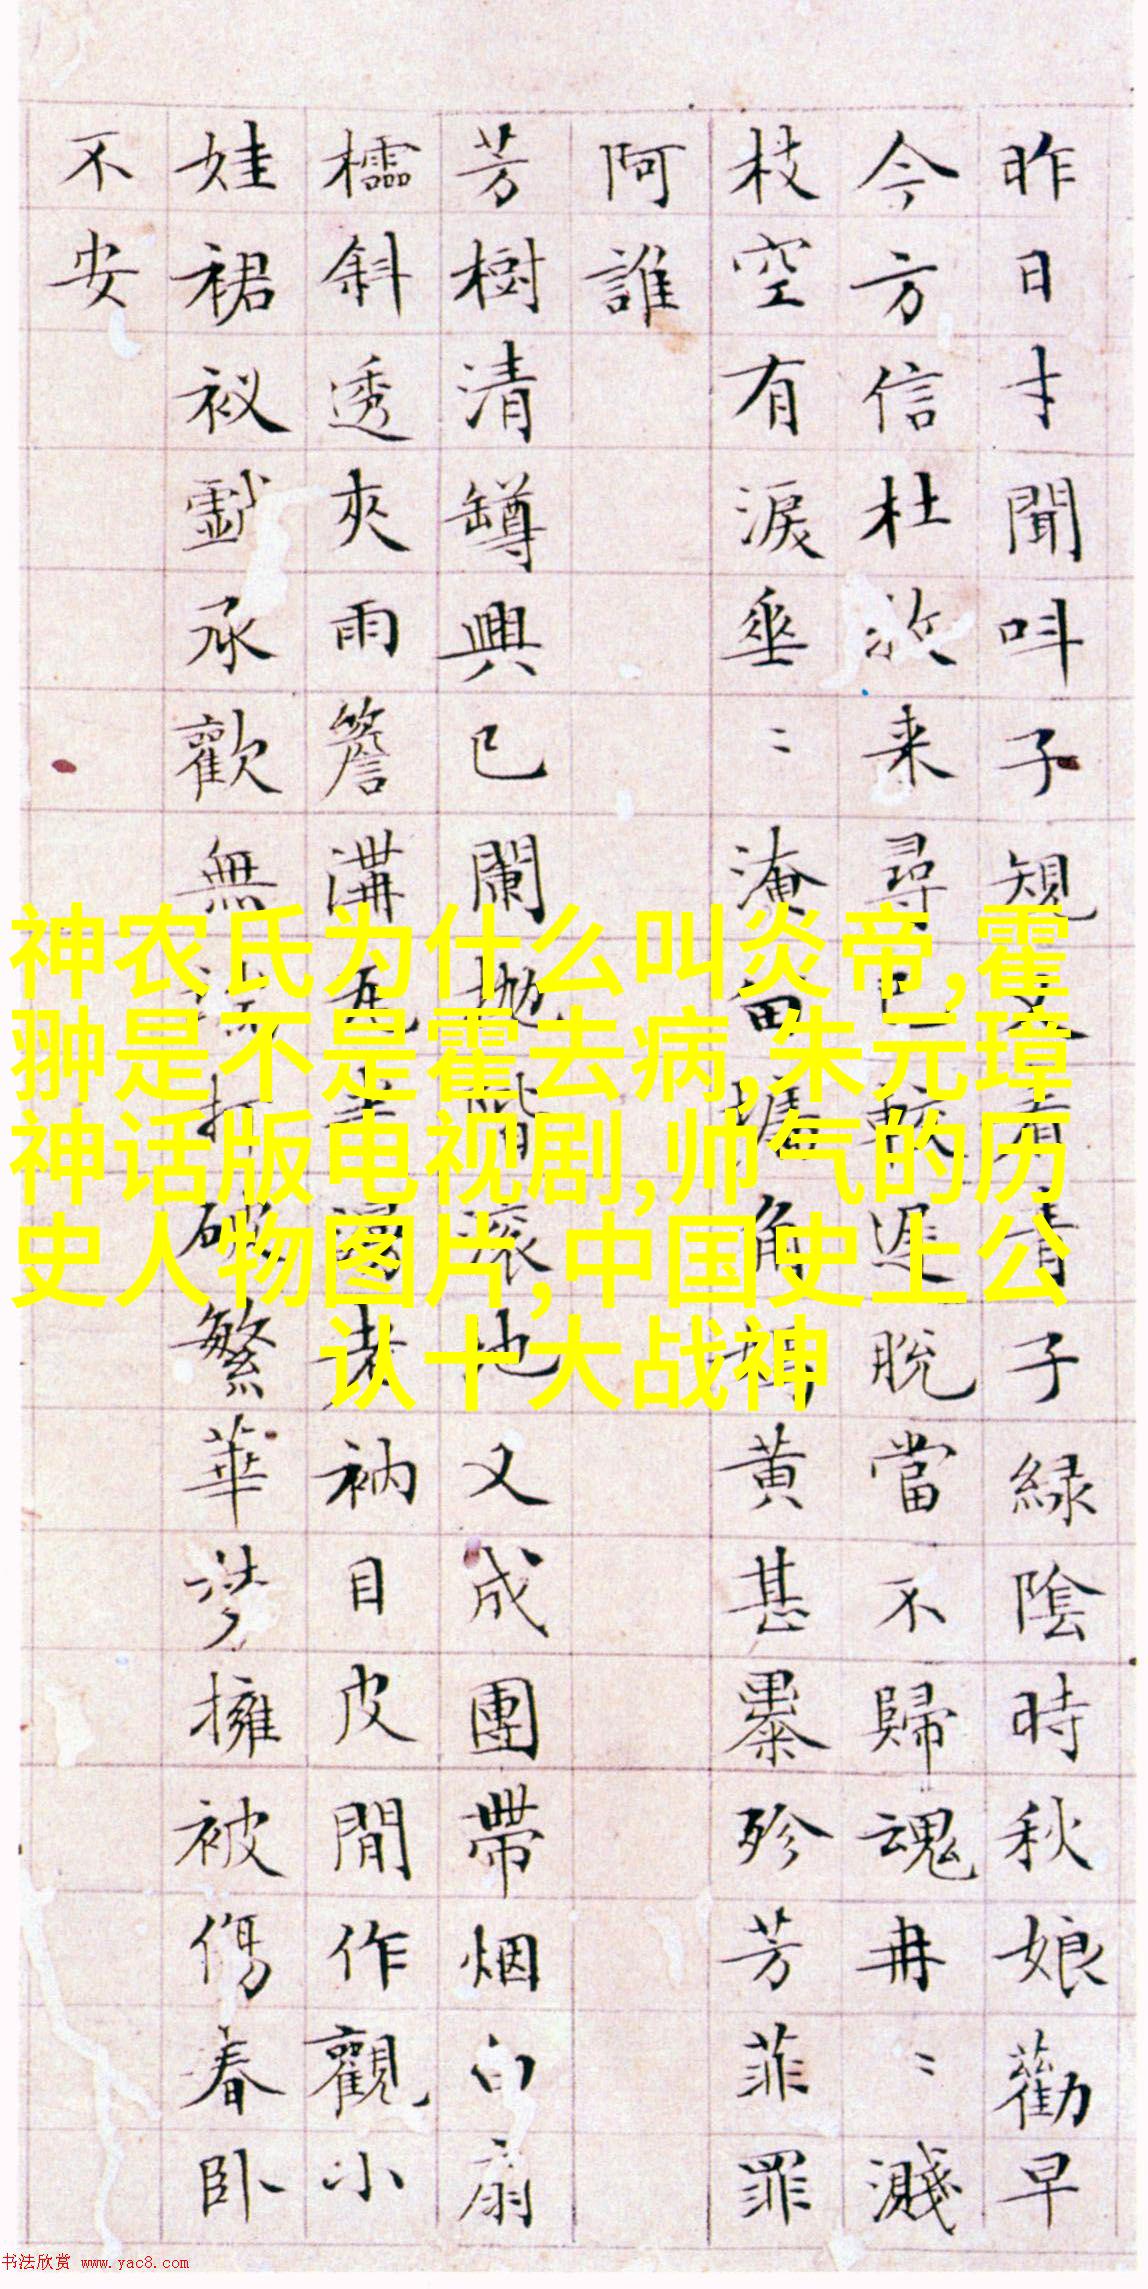 昨日才聞呌子規又看青子緑陰時秋娘勸早
今方信杜牧来尋已較遲脫當不歸魂冉〻濺
枝空有淚垂〻淹留墻角黄甚㬥殄芳菲罪
阿誰
芳樹清罇興已闌抛階滚地又成團帶烟白扇
櫺斜透夾雨簷溝瓦者衲目皮間作觀小
娃裙衩承歡無打破繁華夢擁被傷春卧
不安
神农氏为什么叫炎帝,霍
翀是不是霍去病,朱元璋
神话版电视剧,帅气的历
史人物图片,中国史上公
认十大战神
书法欣赏 www.yac8.com